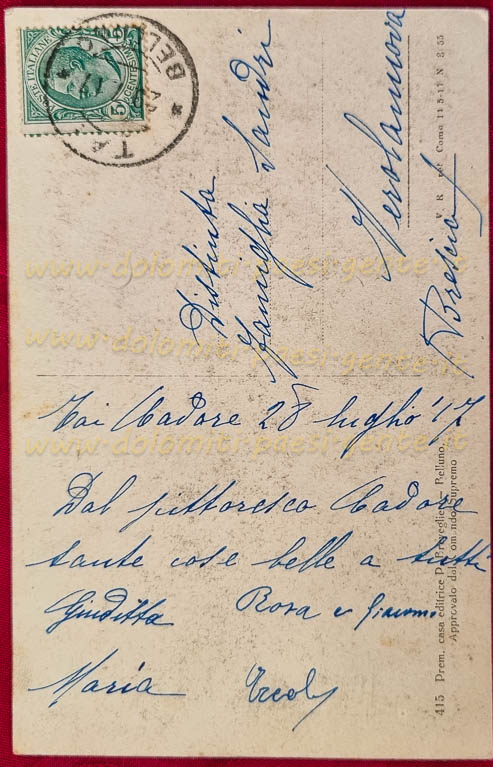 POSTE ITALIANE
CENTESIMI
5 5
TAI
BELLUNO
17
Distinta
Famiglia Sandri
Verolanuova
Brescia
Tai Cadore 28 luglio '17
Dal pittoresco Cadore
tante cose belle a tutti
Giuditta Rosa e Giacomo
Maria Ercole
415 Prem. casa editrice P. Breveglieri - Belluno.
Approvato dal Comando Supremo
V. R. Como 11-5-17 N. 2
www.dolomiti-paesi-gente.it
www.dolomiti-paesi-gente.it
www.dolomiti-paesi-gente.it